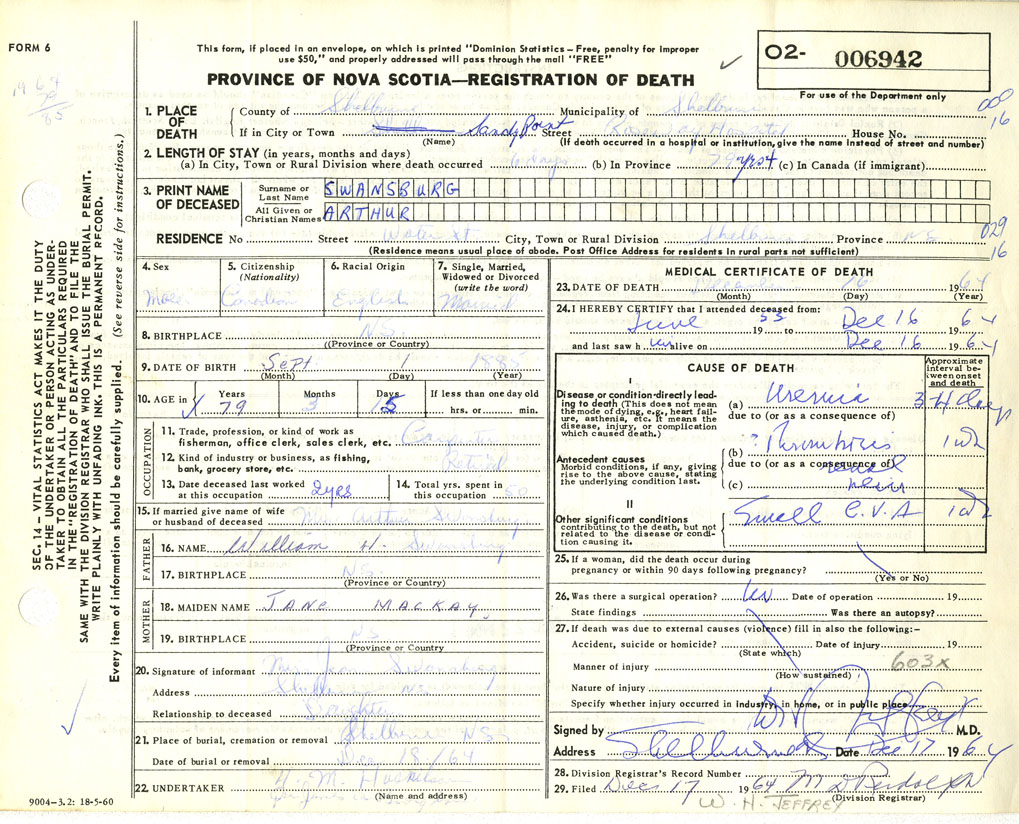 FORM 6
This form, if placed in an envelope, on which is printed "Dominion Statistics – Free, penalty for improper
use $50," and properly addressed will pass through the mail "FREE"
O2- 006942
PROVINCE OF NOVA SCOTIA—REGISTRATION OF DEATH
For use of the Department only
1. PLACE OF DEATH
County of Shelburne Municipality of Shelburne
If in City or Town Sandy Point Street Roseway Hospital House No.
(Name) (If death occurred in a hospital or institution, give the name instead of street and number)
16
2. LENGTH OF STAY (in years, months and days)
(a) In City, Town or Rural Division where death occurred 6 days (b) In Province 79 yrs (c) In Canada (if immigrant)
3. PRINT NAME OF DECEASED
Surname or Last Name SWANSBURG
All Given or Christian Names ARTHUR
029
16
RESIDENCE No Street Water St City, Town or Rural Division Shelburne Province N S
(Residence means usual place of abode. Post Office Address for residents in rural parts not sufficient)
4. Sex Male
5. Citizenship (Nationality) Canadian
6. Racial Origin English
7. Single, Married, Widowed or Divorced (write the word) Married
8. BIRTHPLACE N S
((Province or Country)
9. DATE OF BIRTH Sept 1
(Month) (Day) (Year)
10. AGE in Years 79 Months 3 Days 15 If less than one day old hrs. or min.
OCCUPATION
11. Trade, profession, or kind of work as fisherman, office clerk, sales clerk, etc. Carpenter
12. Kind of industry or business, as fishing, bank, grocery store, etc. Retired
13. Date deceased last worked at this occupation 2 yrs
14. Total yrs. spent in this occupation 50
15. If married give name of wife or husband of deceased Mrs Arthur Swansburg
FATHER
16. NAME William H. Swansburg
17. BIRTHPLACE N S
(Province or Country)
MOTHER
18. MAIDEN NAME JANE MACKAY
19. BIRTHPLACE N S
(Province or Country
20. Signature of informant Miss Jean Swansburg
Address Shelburne N S
Relationship to deceased Daughter
21. Place of burial, cremation or removal Shelburne N S
Date of burial or removal Dec 18/64
22. UNDERTAKER
(Name and address)
9004–3.2: 18-5-60
MEDICAL CERTIFICATE OF DEATH
23. DATE OF DEATH December 16 1964
(Month) (Day) (Year)
24. I HEREBY CERTIFY that I attended deceased from:
June 1955 to Dec 16 64
and last saw him alive on Dec 16 1964
CAUSE OF DEATH
Approximate interval between onset and death
I
Disease or condition directly leading to death (This does not mean the mode of dying, e.g., heart failure, asthenia, etc. It means the disease, injury, or complication which caused death.)
(a) Uremia 3-4 days
due to (or as a consequence of)
Antecedent causes
Morbid conditions, if any, giving rise to the above cause, stating the underlying condition last.
(b) ? Thrombosis 1 wk
due to (or as a consequence of) renal
(c) vein
II
Other significant conditions
contributing to the death, but not related to the disease or condition causing it.
Small C.V.A 1 wk
25. If a woman, did the death occur during
pregnancy or within 90 days following pregnancy?
(Yes or No)
26. Was there a surgical operation? No Date of operation 19
State findings Was there an autopsy?
27. If death was due to external causes (violence) fill in also the following:–
Accident, suicide or homicide? Date of injury 19
(State which)
Manner of injury 603x
(How sustained)
Nature of injury
Specify whether injury occurred in industry, in home, or in public place
Signed by W H Jeffrey M.D.
Address Shelburne Date Dec 17 1964
28. Division Registrar's Record Number
29. Filed Dec 17 1964
(Division Registrar)
W. H. JEFFREY
SEC. 14 – VITAL STATISTICS ACT MAKES IT THE DUTY
OF THE UNDERTAKER OR PERSON ACTING AS UNDER-
TAKER TO OBTAIN ALL THE PARTICULARS REQUIRED
IN THE "REGISTRATION OF DEATH" AND TO FILE THE
SAME WITH THE DIVISION REGISTRAR WHO SHALL ISSUE THE BURIAL PERMIT.
WRITE PLAINLY WITH UNFADING INK. THIS IS A PERMANENT RECORD.
Every item of information should be carefully supplied. (See reverse side for instructions.)